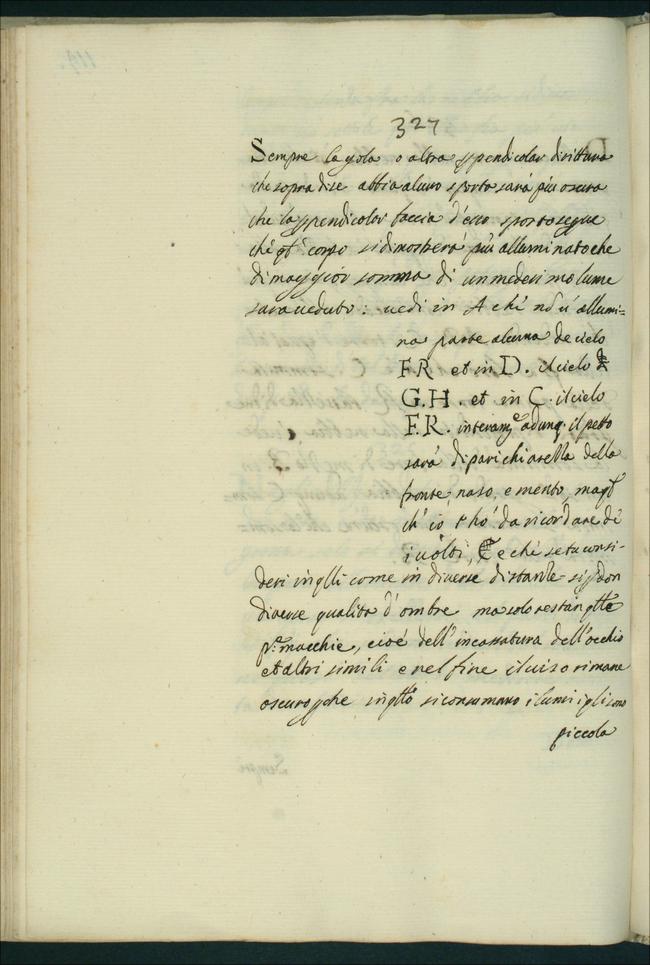 327
Sempre la gola o altra ppendicolar dirittura
che sopra di se abbia alcuno sporto sará piu oscura
che la ppendicolar faccia d'esso sporto segue
che qt̃ corpo si dimostrerá più alluminato che
di maggior somma di un medesimo lume
sara ueduto: uedi in A che nõ u' allumi=
na parte alcuna de cielo
F.R et in D. il cielo
G.H. et in C. il cielo
F.R.
il petto
sará di pari chiarezza della
fronte, naso, e mento,
ch' io t'hó da ricordare de
i uolti, é che se tu consi-
deri in qlli come in diverse distantie si pdon
diverse qualita d'ombre ma solo restan qlle
pe macchie, cioé dell'incassatura dell'occhio
et altri simili e nel fine il uiso rimane
oscuro pche in qllo si consumano i lumi i qli sono
piccola